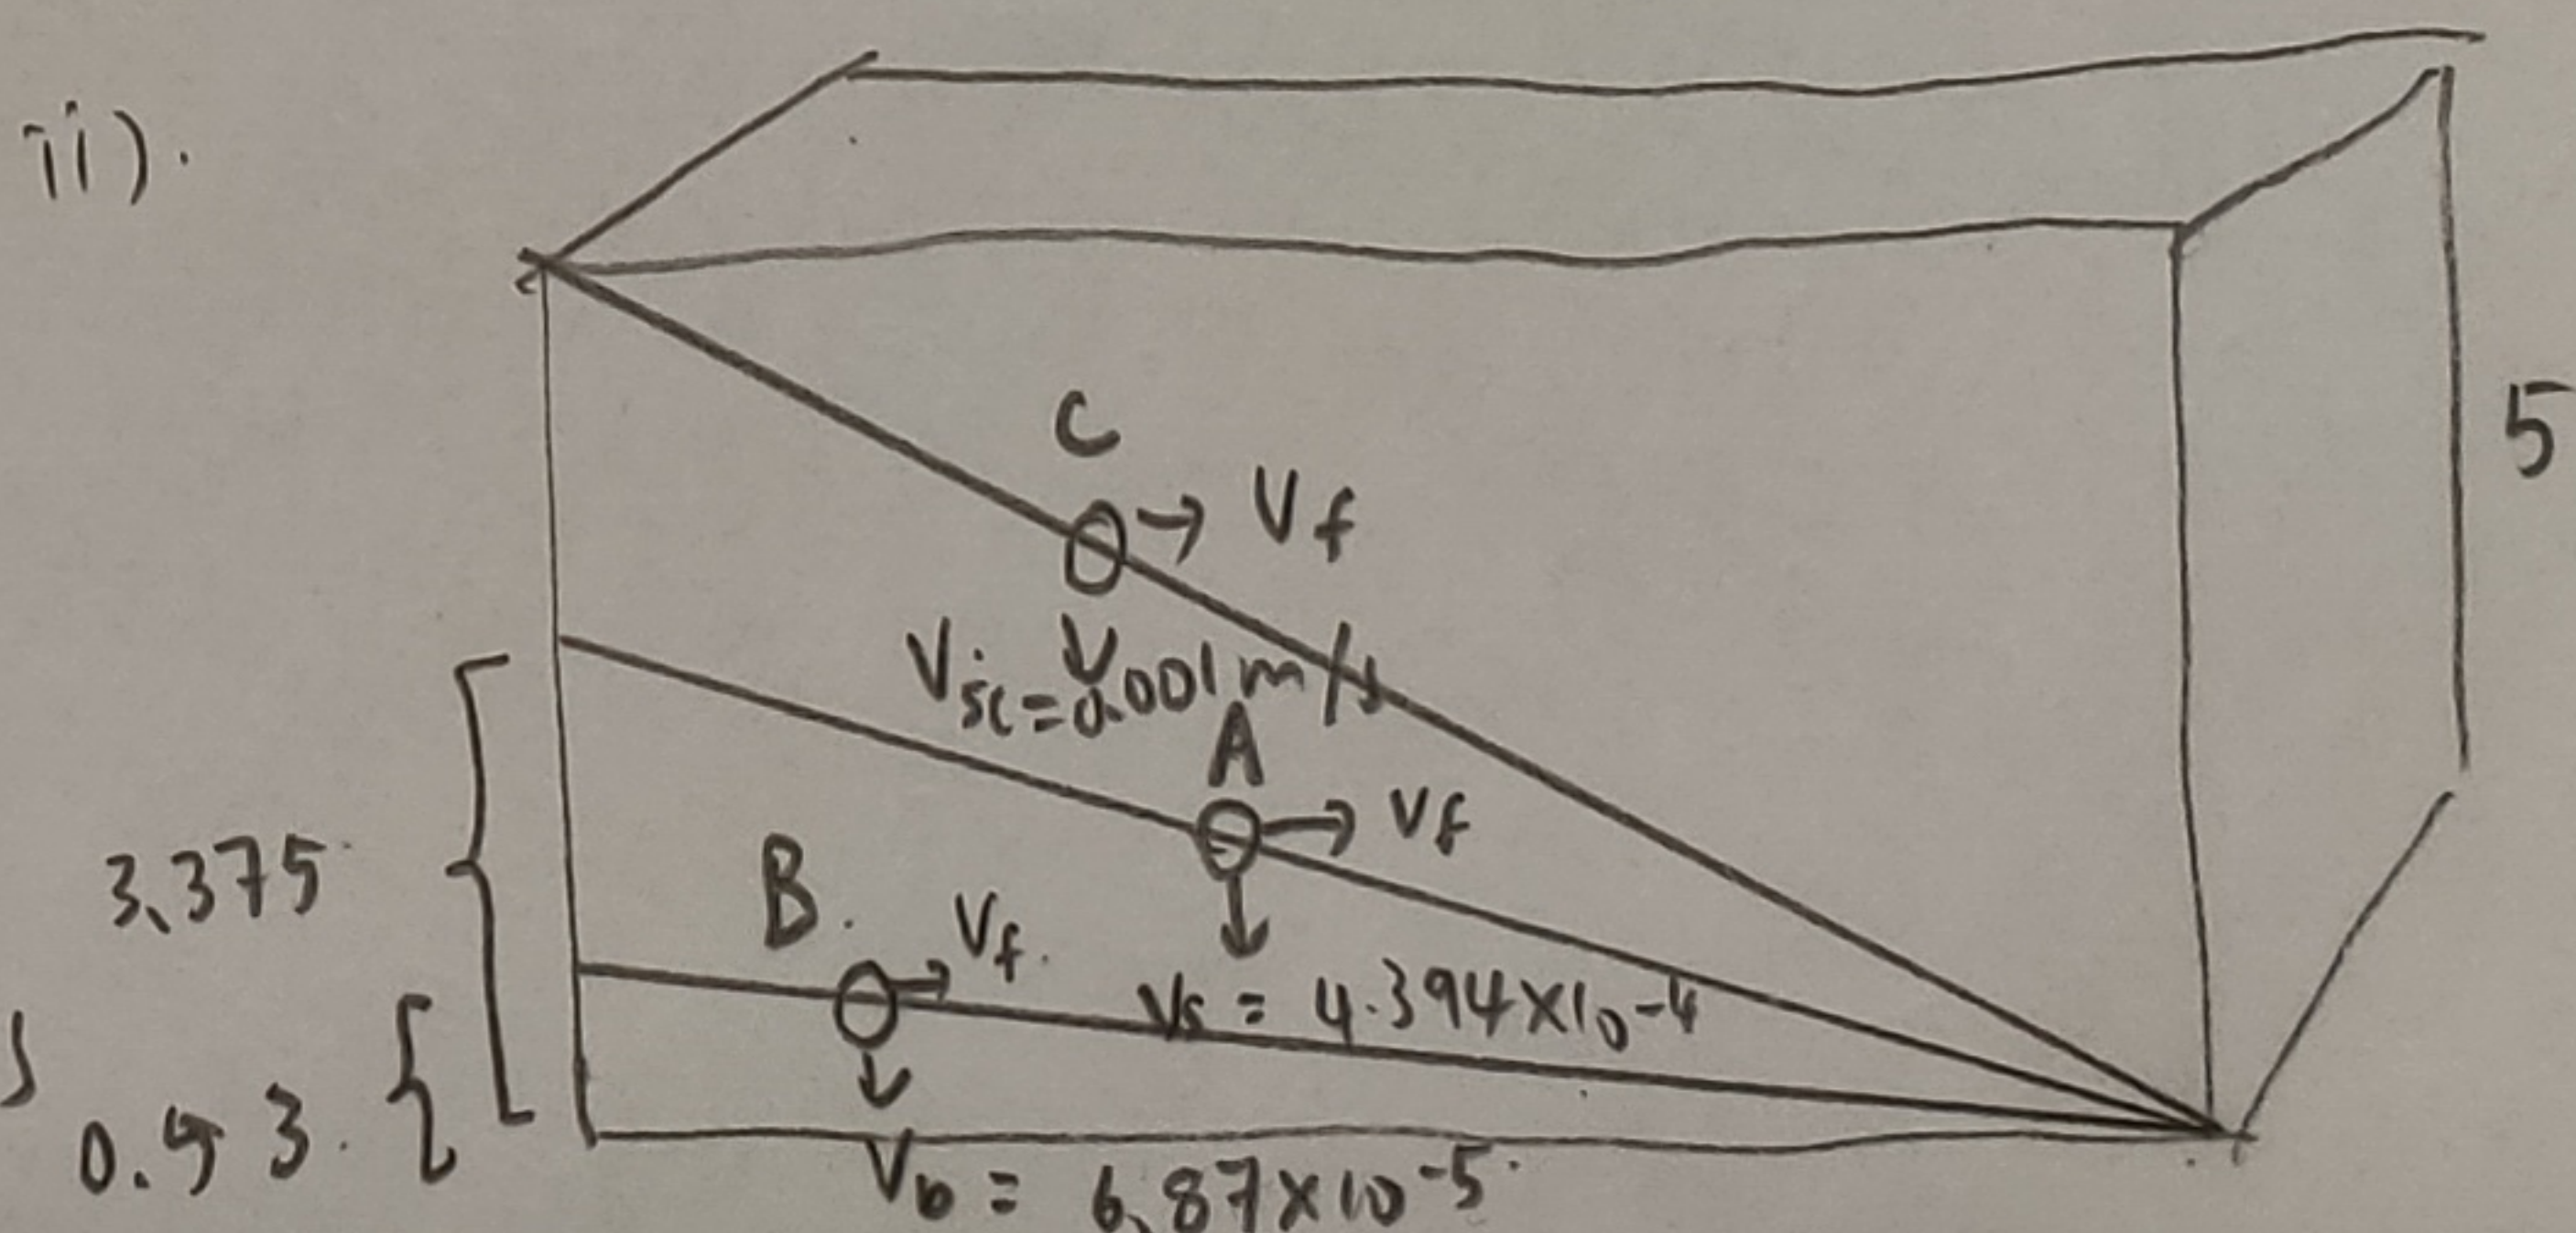 ii).
5
C
→ Vf
Vsc = 0.001 m/s
A
→ Vf
3.375
B.
Vf.
Vs = 4.394×10-4
0.53.
Vb = 6.87×10-5